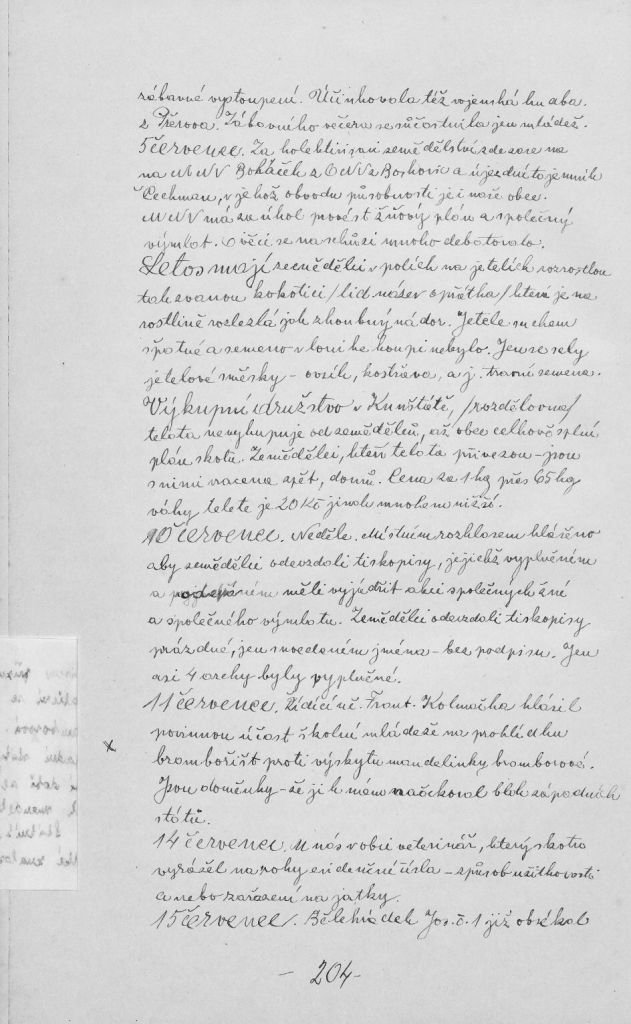 zábavné vystoupení. Účinkovala též vojenská hudba.
z Přerova. Zábavního večera se súčastnila jen mládež.
5 července. Za kolektivisaci zemědělství zde
na MNV Boháček z ONV z Boskovic a újezdní tajemník
Čechman, v jehož obvodu působnosti je i naše obec.
MNV má za úkol provést žňový plán a společný
výmlat. O věci se na schůzi mnoho debatovalo.
Letos mají zemědělci v polích na jetelích rozrostlou
tak zvanou kokotici /lid. název /která je na
rostlině rozlezlá jak zhoubný nádor. Jetele suchem
špatné a semeno v loni ke koupi nebylo. Jen se sely
jetelové směsky - ovsík, kostřava, a j. travní semena.
Výkupní družstvo v Kunštátě, /rozdělovna/
telata nevykupuje od zemědělců, až obec celkově splní
plán skotu. Zemědělci, kteří telata přivezou - jsou
s nimi vraceni zpět, domů. Cena za 1 kg přes 65 kg
váhy telete je 20 Kč jinak mnohem nižší.
10 červenec. Neděle. Místním rozhlasem hlášeno
aby zemědělci odevzdali tiskopisy, jejichž vyplněním
a měli vyjádřit akci společných žní
a společného výmlatu. Zemědělci odevzdali tiskopisy
prázdné, jen s uvedením jména - bez podpisu. Jen
asi 4 archy byly vyplněné.
11 červenec. Řídící uč. Frant. Kolmačka hlásil
x povinnou účast školní mládeže na prohlídku
bramborišt proti výskytu mandelinky bramborové.
Jsou domněnky - že ji k nám blok západních
států.
14 červenec. U nás v obci veterinář, který skotu
vyrážel na rohy evidenční čísla - způsob užitkovosti
a nebo zařazení na jatky.
15 červenec. Bělehrádek Jos. č. 1 již obsékal
- 204 -